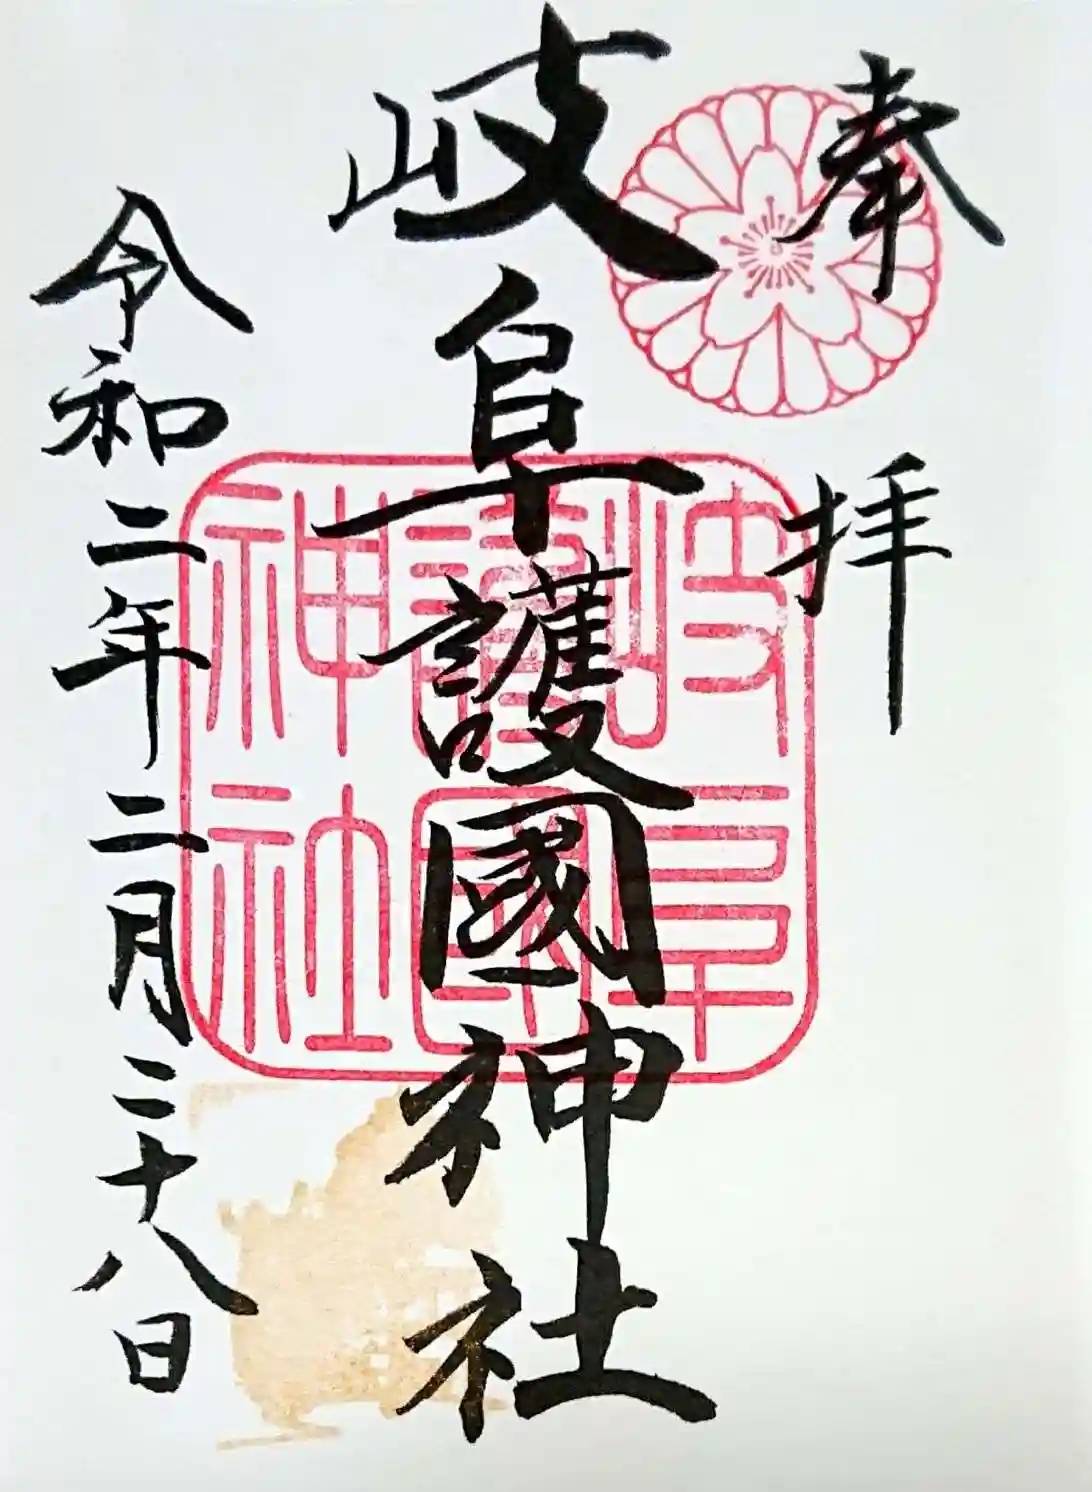 奉拝
岐阜護國神社
岐阜
護國
神社
令和二年二月二十八日